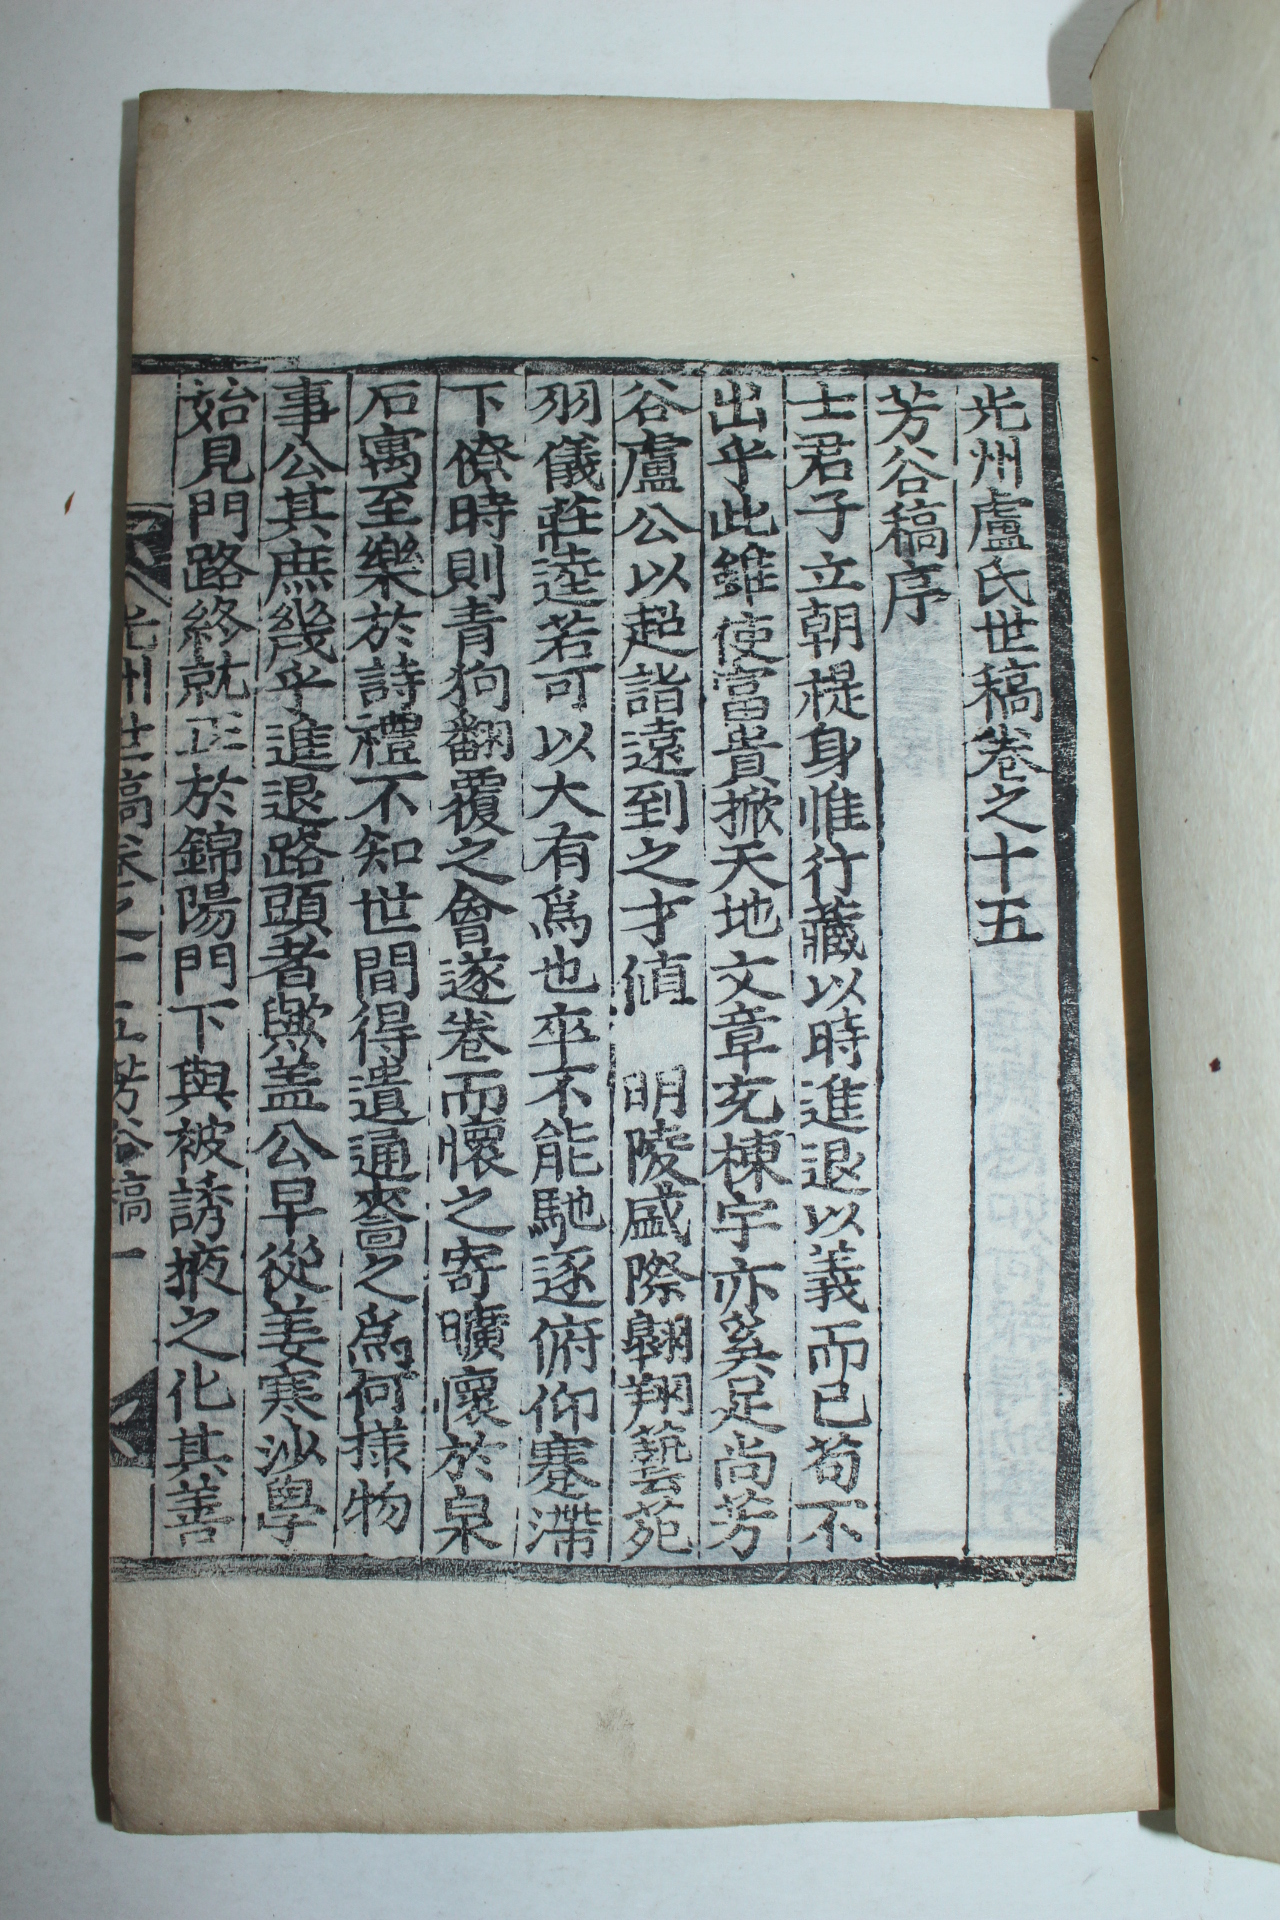 光州盧氏世稿卷之十五
芳谷稿序
士君子立朝禔身惟行藏以時進退以義而已苟不
出乎此雖使富貴掀天地文章充棟宇亦奚足尚芳
谷盧公以超詣遠到之才値　明陵盛際翶翔藝苑
羽儀莊逵若可以大有爲也卒不能馳逐俯仰蹇滯
下僚時則靑狗翻覆之會遂卷而懷之寄曠懷於泉
石寓至樂於詩禮不知世間得遣通嗇之爲何樣物
事公其庶幾乎進退路頭者歟盖公早從姜寒沙學
始見門路終就正於錦陽門下與被誘掖之化其善
光州世稿卷之十五芳谷稿 一